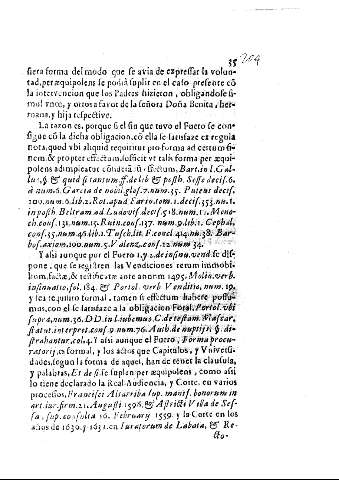 35 204
siera forma del modo que se avia de expressar la volun-
tad, per æquipolens se podrá suplir en el caso presente cõ
la intervencion que los Padres hizieron, obligandose si-
mol unos, y otros a favor de la señora Doña Benita, her-
mana, y hija respective.
La razon es, porque si el fin que tuvo el Fuero se con-
sigue cõ la dicha obligacion, cõ ella se satisface ex regula
nota, quod ubi aliquid requiritur pro forma ad certum fi-
nem, & propter effectum, sufficit ut talis forma per æqui-
polens adimpleatur
Bart. in l. Gal-
lus, § & quid si tantum, ff. de lib. & posth. Sesse decis. 6.
à num. 6. Garcia de nobil. glos. 7. num. 35. Puteus decis.
100. num. 6. lib. 2. Rot. apud Fario. tom. 1. decis. 353. nu. 1.
in posth. Beltram. ad Ludovis. decis. 518. num. 11. Meno-
ch. conf. 131. num. 15. Ruin. conf. 137. num. 9. lib. 1. Cephal.
conf. 35. num. 46. lib. 1. Tusch. lit. F. concl. 414. nu. 38. Bar-
bos. axiom. 100. num. 5. Valenz. conf. 22. num. 34.
Y assi aunque por el Fuero 1. y 2. de insinu. vend. se dis-
pone, que se registren las Vendiciones rerum immobi-
lium, factæ, & testificatæ ante annum 1495. Molin. verb.
insinuatio, fol. 184. & Portol. verb. Venditio, num. 19.
y sea requisito formal, tamen si effectum habere possu-
mus, con el se satisface a la obligacion Foral, Portol. ubi
supra, num. 36. DD. in l. iubemus, C. de testam. Mascar.
statut. interpret. conf. 9 num. 76. Auth. de nuptijs, §. di-
strahantur, col. 4. Y assi aunque el Fuero, Forma procu-
ratorij, es formal, y los actos que Capitulos, y Universi-
dades, segun la forma de aquel, han de tener la clausula,
y palabras, Et de sì se suplen per æquipolens, como assi
lo tiene declarado la Real Audiencia, y Corte, en varios
processos, Francisci Altarriba sup. manif. bonorum in
art. iur. firm. 21. Augusti 1596. & Astricti Villæ de Ses-
sa, sup. consulta 16. February 1559. y la Corte en los
años de 1630. y 1631. en Iuratorum de Labata, & Re-
cto-